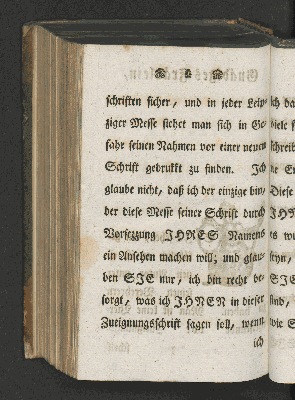 schriften sicher, und in jeder Leip-
ziger Messe siehet man sich in Ge-
fahr seinen Nahmen vor einer neuen
Schrift gedrukkt zu finden. Ich
glaube nicht, daß ich der einzige bin,
der diese Messe seiner Schrift durch
Vorsezzung JHRES Namens
ein Ansehen machen will; und glau-
ben SJE nur, ich bin recht be-
sorgt, was ich JHNEN in dieser
Zueignungsschrift sagen soll, wenn
ich